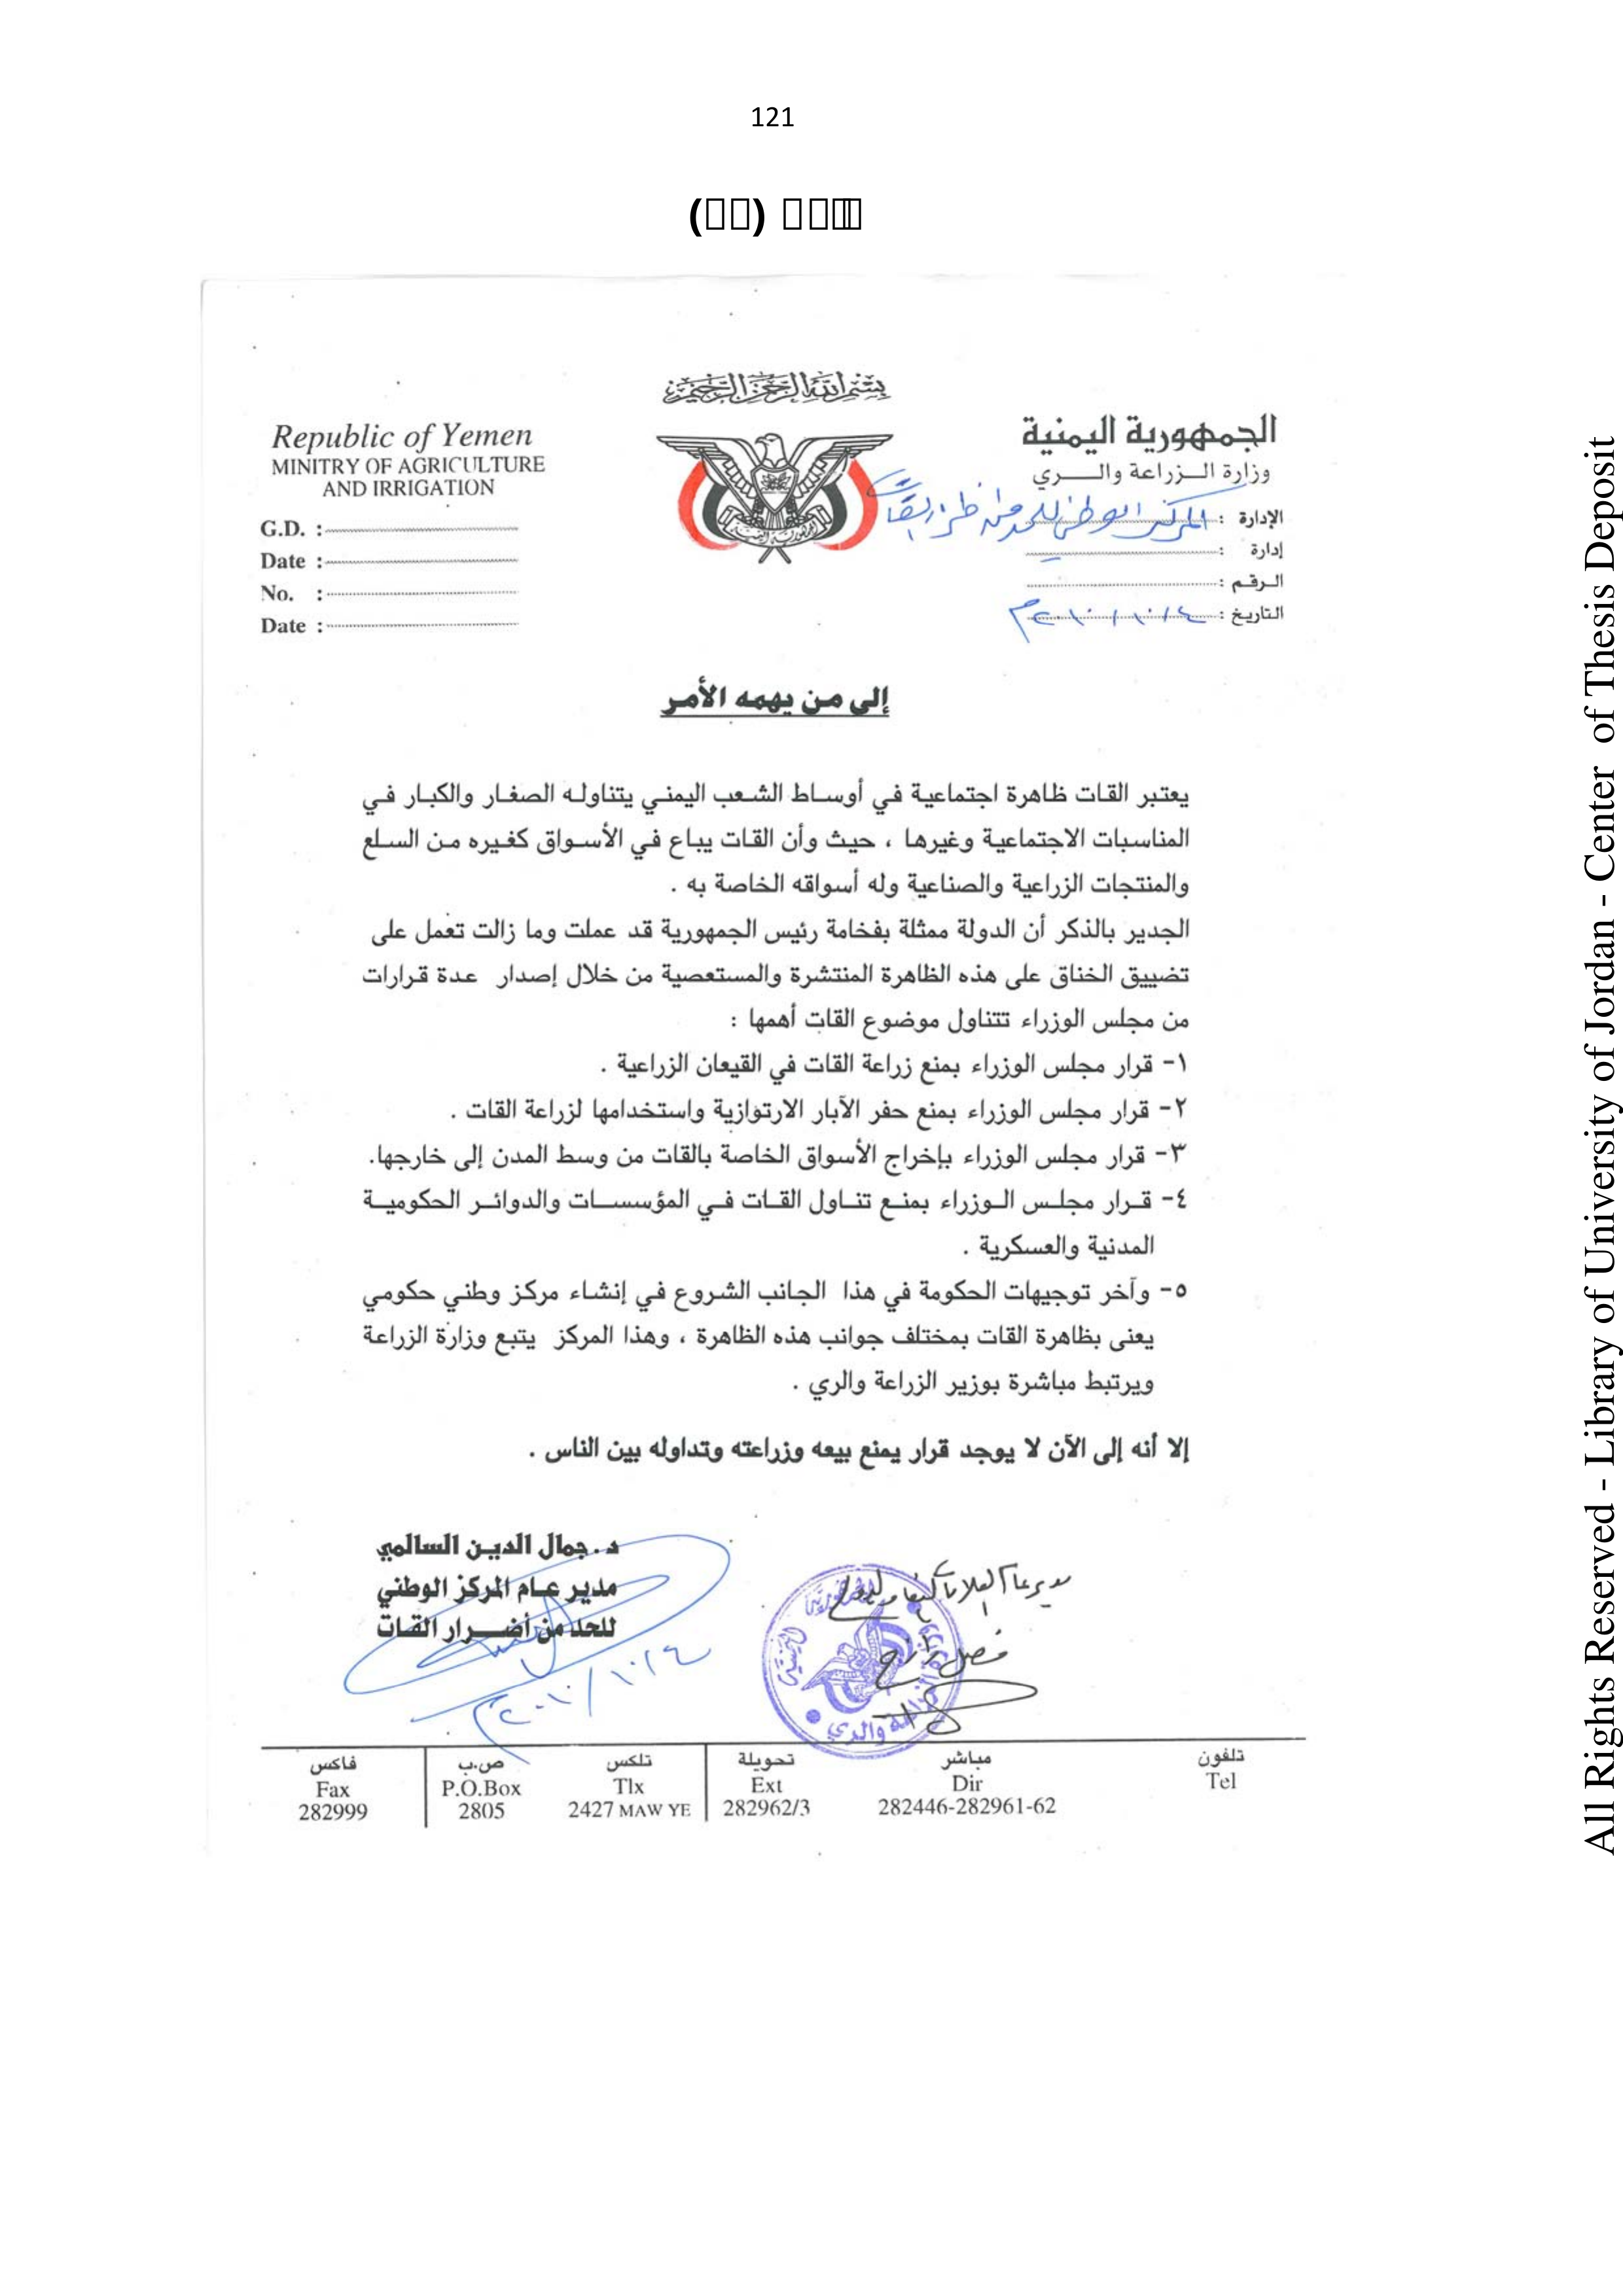 121
بسم الله الرحمن الرحيم
Republic of Yemen
MINITRY OF AGRICULTURE
AND IRRIGATION
G.D. :
Date :
No. :
Date :
الجمهورية اليمنية
وزارة الـزراعة والـــري
الإدارة : المركز الوطني للحد من أضرار القات
إدارة :
الـرقـم :
التاريخ : ٢٠١٠/١٠/٤م
إلى من يهمه الأمر
يعتبر القات ظاهرة اجتماعية في أوساط الشعب اليمني يتناوله الصغار والكبار في
المناسبات الاجتماعية وغيرها ، حيث وأن القات يباع في الأسواق كغيره من السلع
والمنتجات الزراعية والصناعية وله أسواقه الخاصة به .
الجدير بالذكر أن الدولة ممثلة بفخامة رئيس الجمهورية قد عملت وما زالت تعمل على
تضييق الخناق على هذه الظاهرة المنتشرة والمستعصية من خلال إصدار عدة قرارات
من مجلس الوزراء تتناول موضوع القات أهمها :
١- قرار مجلس الوزراء بمنع زراعة القات في القيعان الزراعية .
٢- قرار مجلس الوزراء بمنع حفر الآبار الارتوازية واستخدامها لزراعة القات .
٣- قرار مجلس الوزراء بإخراج الأسواق الخاصة بالقات من وسط المدن إلى خارجها.
٤- قـرار مجلـس الـوزراء بمنـع تنـاول القـات فـي المؤسسـات والدوائـر الحكوميـة
المدنية والعسكرية .
٥- وآخر توجيهات الحكومة في هذا الجانب الشروع في إنشاء مركز وطني حكومي
يعنى بظاهرة القات بمختلف جوانب هذه الظاهرة ، وهذا المركز يتبع وزارة الزراعة
ويرتبط مباشرة بوزير الزراعة والري .
إلا أنه إلى الآن لا يوجد قرار يمنع بيعه وزراعته وتداوله بين الناس .
د. جمال الدين السالمي
مدير عـام المركز الوطني
للحد من أضـــرار القـات
٢٠١٠/١٠/٤م
مدير عام العلاقات
الجمهورية اليمنية
والري
تلفون
Tel
مباشر
Dir
282446-282961-62
تحويلة
Ext
282962/3
تلكس
Tlx
2427 MAW YE
ص.ب
P.O.Box
2805
فاكس
Fax
282999
All Rights Reserved - Library of University of Jordan - Center of Thesis Deposit